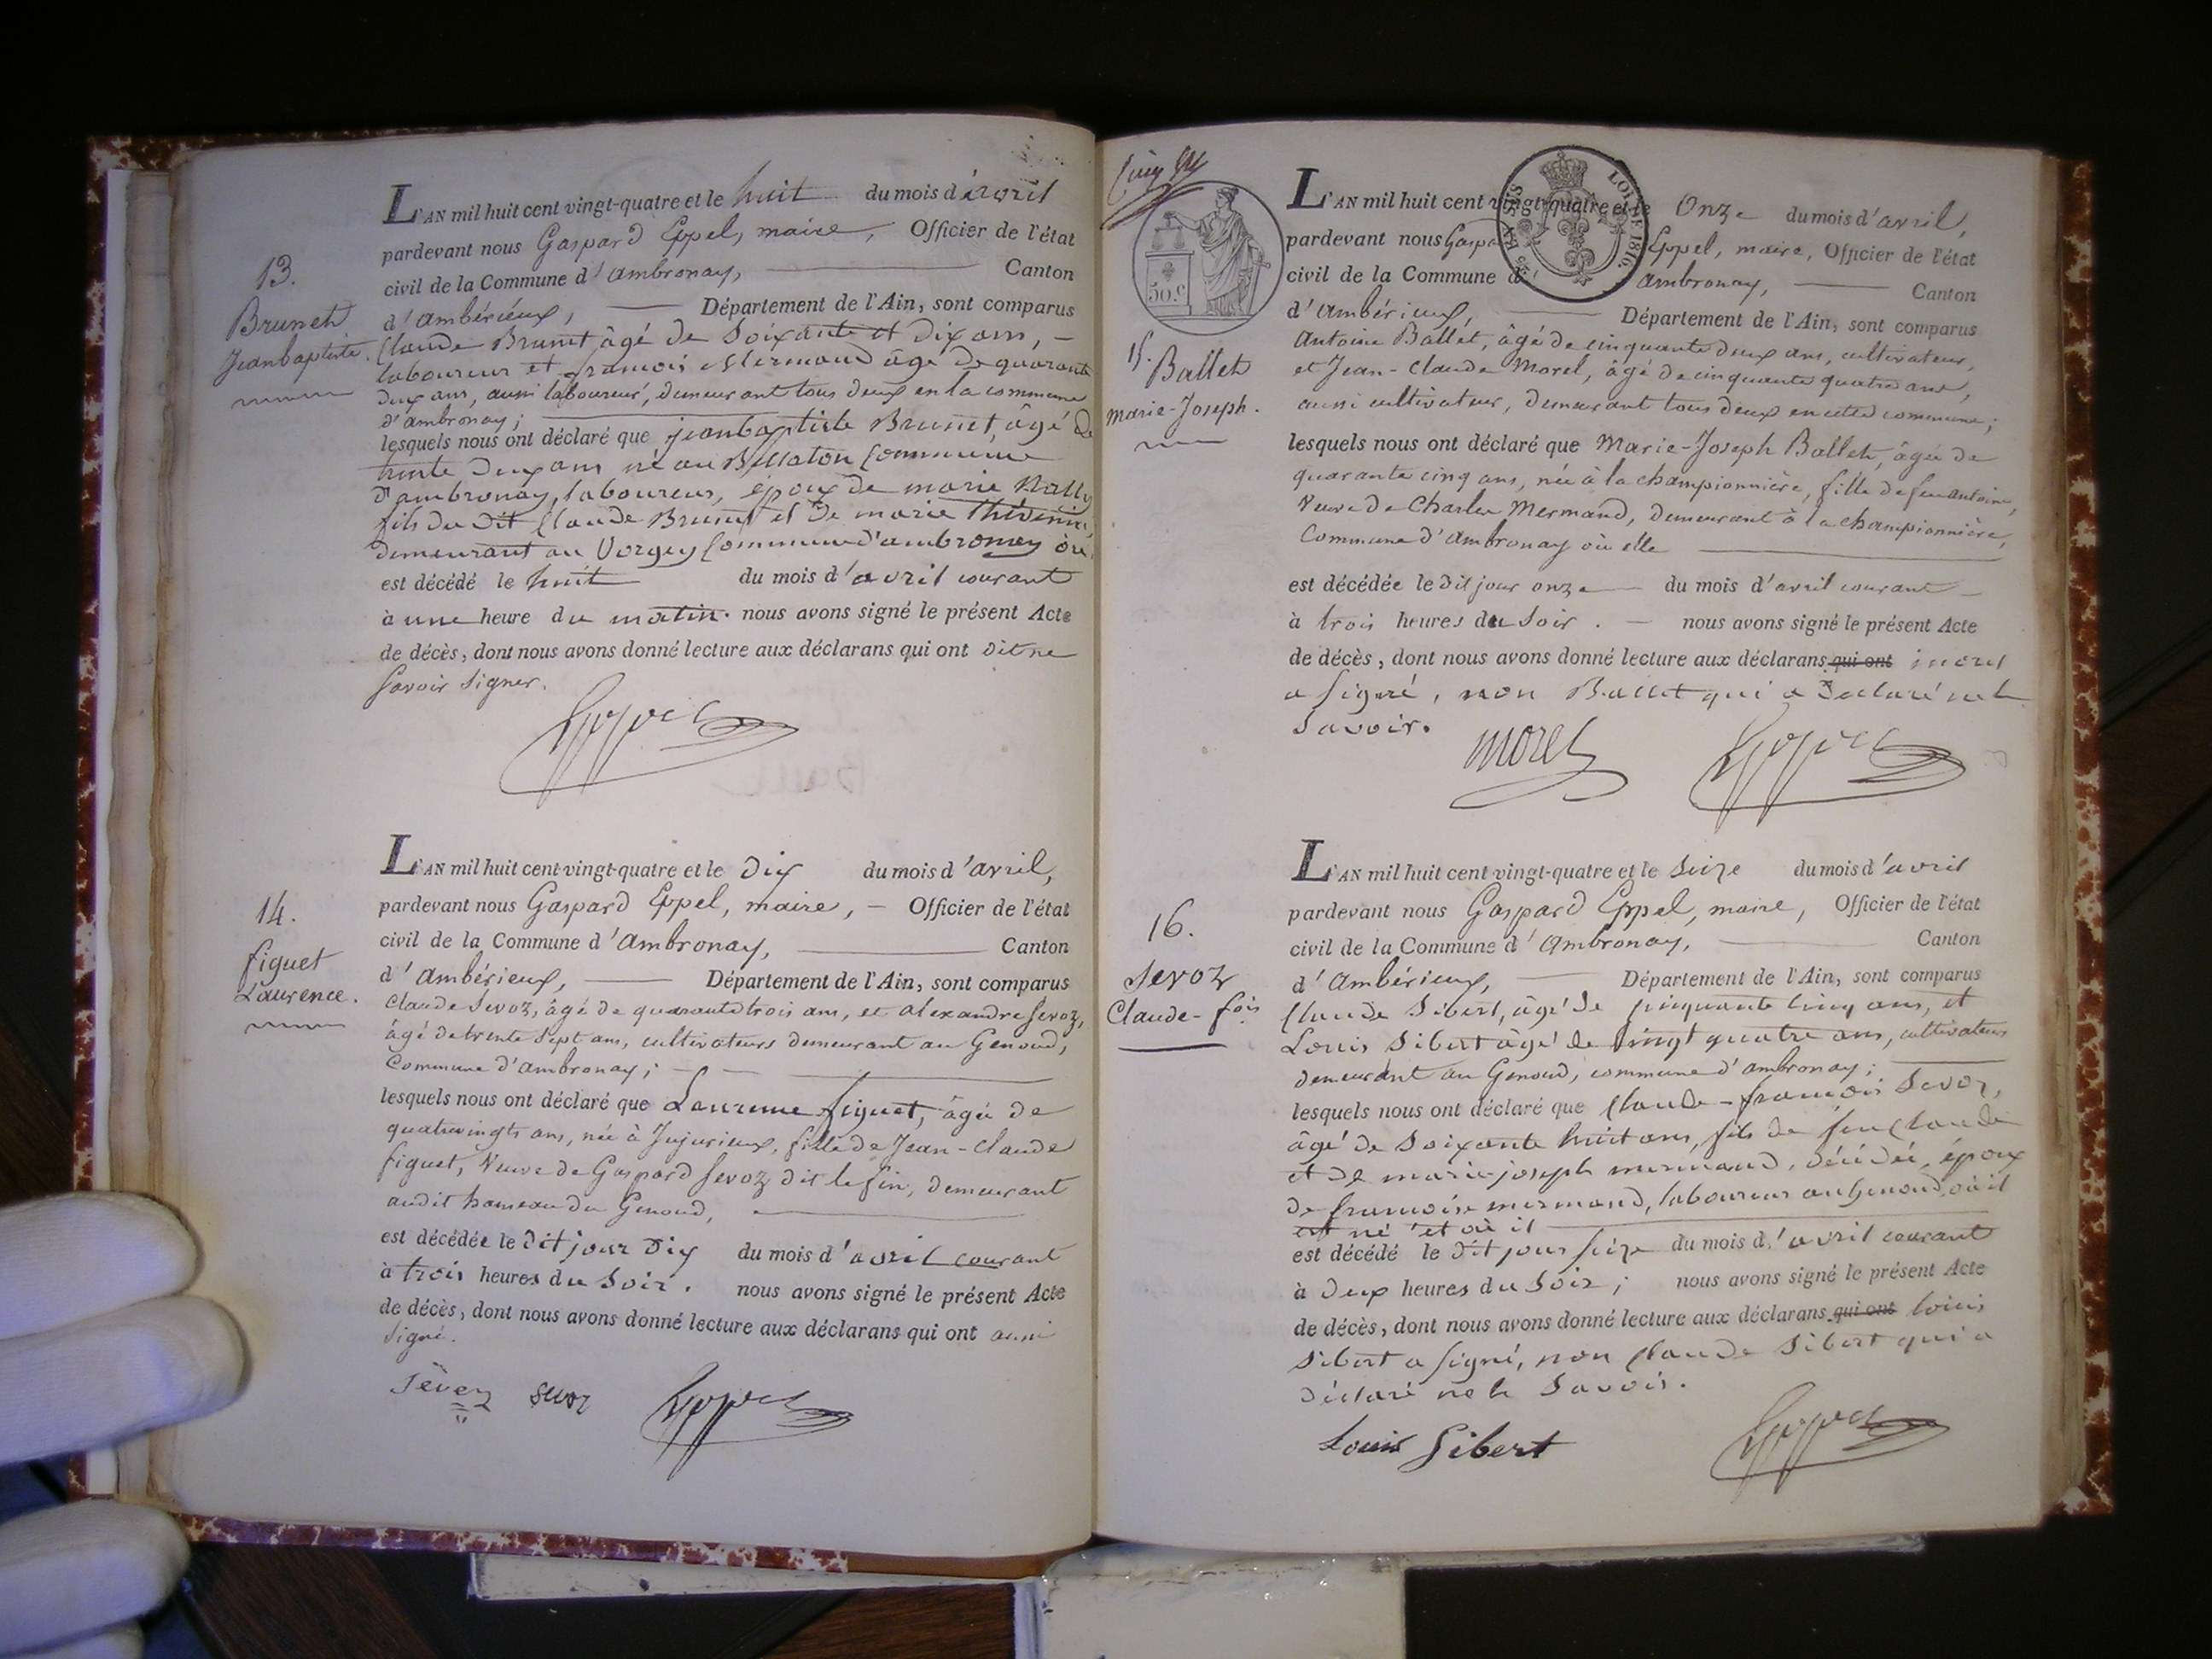 13.
Brunet
Jeanbaptiste.
L'AN mil huit cent vingt-quatre et le huit du mois d'avril
pardevant nous Gaspard Eppel, maire, Officier de l'état
civil de la Commune d'ambronay, Canton
d'ambérieux, Département de l'Ain, sont comparus
Claude Brunet âgé de Soixante et Dix ans,
laboureur et françois Mermand âgé de quarante
deux ans, aussi laboureur, demeurant tous deux en la commune
d'ambronay;
lesquels nous ont déclaré que jeanbaptiste Brunet, âgé de
trente deux ans né au Commune
d'ambronay, laboureur, époux de marie
fils du dit Claude Brunet et de marie thévenin,
demeurant au Vorgey Commune d'ambronay où il
est décédé le huit du mois d'avril courant
à une heure du matin. nous avons signé le présent Acte
de décès, dont nous avons donné lecture aux déclarans qui ont dit ne
Savoir Signer.
Eppel
14.
figuet
Laurence.
L'AN mil huit cent vingt-quatre et le Dix du mois d'avril,
pardevant nous Gaspard Eppel, maire, Officier de l'état
civil de la Commune d'Ambronay, Canton
d'Ambérieux, Département de l'Ain, sont comparus
Claude Sevoz, âgé de quarante trois ans, et alexandre Sevoz,
âgé de trente Sept ans, cultivateurs demeurant au Genoud,
Commune d'ambronay;
lesquels nous ont déclaré que Laurence figuet, âgée de
quatrevingts ans, née à Jujurieux, fille de Jean-Claude
figuet, Veuve de Gaspard Sevoz dit le fin, demeurant
audit hameau du Genoud,
est décédée le dit jour Dix du mois d'avril courant
à trois heures du Soir. nous avons signé le présent Acte
de décès, dont nous avons donné lecture aux déclarans qui ont aussi
Signé.
Sevoz Eppel
50.c
LOI DE 1816.
15.
Ballet
marie-Joseph.
L'AN mil huit cent vingt-quatre et le Onze du mois d'avril,
pardevant nous Gaspard Eppel, maire, Officier de l'état
civil de la Commune d'ambronay, Canton
d'ambérieux, Département de l'Ain, sont comparus
Antoine Ballet, âgé de cinquante deux ans, cultivateur,
et Jean-Claude Morel, âgé de cinquante quatre ans,
aussi cultivateur, demeurant tous deux en cette commune;
lesquels nous ont déclaré que Marie-Joseph Ballet, âgée de
quarante cinq ans, née à la championnière, fille de feu antoine,
Veuve de Charles Mermand, demeurant à la championnière,
Commune d'Ambronay où elle
est décédée le dit jour onze du mois d'avril courant
à trois heures du Soir. nous avons signé le présent Acte
de décès, dont nous avons donné lecture aux déclarans qui ont morel
a signé, non Ballet qui a déclaré ne le
Savoir.
morel Eppel
16.
Sevoz
Claude-fois
L'AN mil huit cent vingt-quatre et le Seize du mois d'avril
pardevant nous Gaspard Eppel, maire, Officier de l'état
civil de la Commune d'Ambronay, Canton
d'Ambérieux, Département de l'Ain, sont comparus
Claude Sibert, âgé de cinquante cinq ans, et
Louis Sibert âgé de vingt quatre ans, cultivateurs
demeurant au Genoud, commune d'ambronay;
lesquels nous ont déclaré que Claude-françois Sevoz,
âgé de Soixante huit ans, fils de feu Claude
et de marie-joseph mermand, décédée, époux
de françoise mermand, laboureur au Genoud, où il
est né et où il
est décédé le dit jour Seize du mois d'avril courant
à Deux heures du Soir; nous avons signé le présent Acte
de décès, dont nous avons donné lecture aux déclarans qui ont Louis
Sibert a signé, non Claude Sibert qui a
déclaré ne le Savoir.
Louis Sibert Eppel